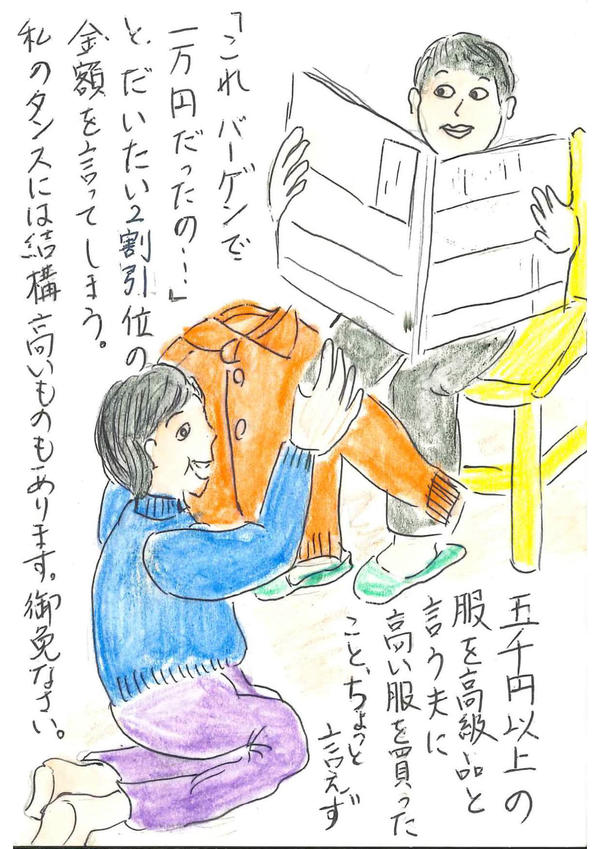 五千円以上の
服を高級品と
言う夫に
高い服を買った
こと、ちょっと
言えず
「これ バーゲンで
一万円だったの…」
と、だいたい2割引位の
金額を言ってしまう。
私のタンスには結構高いものもあります。御免なさい。